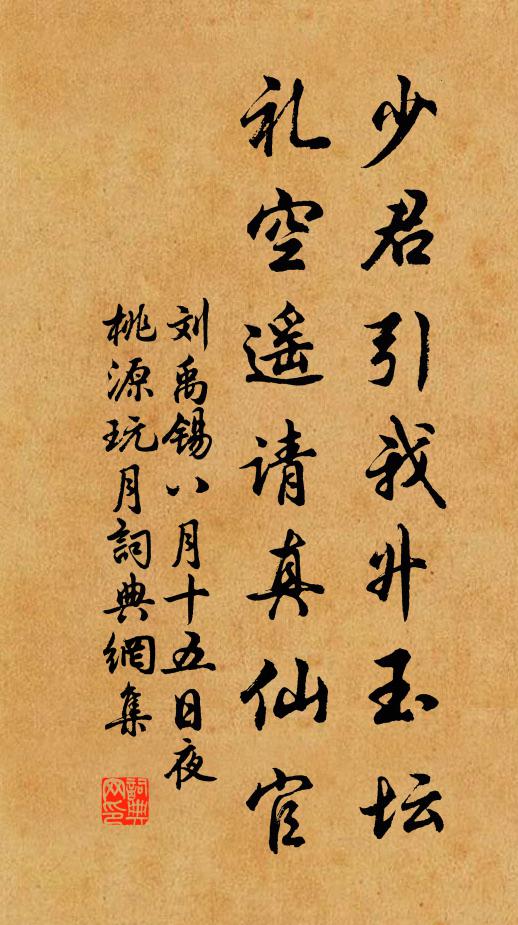 少君引我升玉坛
礼空遥请真仙官
刘禹锡八月十五日夜
桃源玩月詞典網集
詞典网印